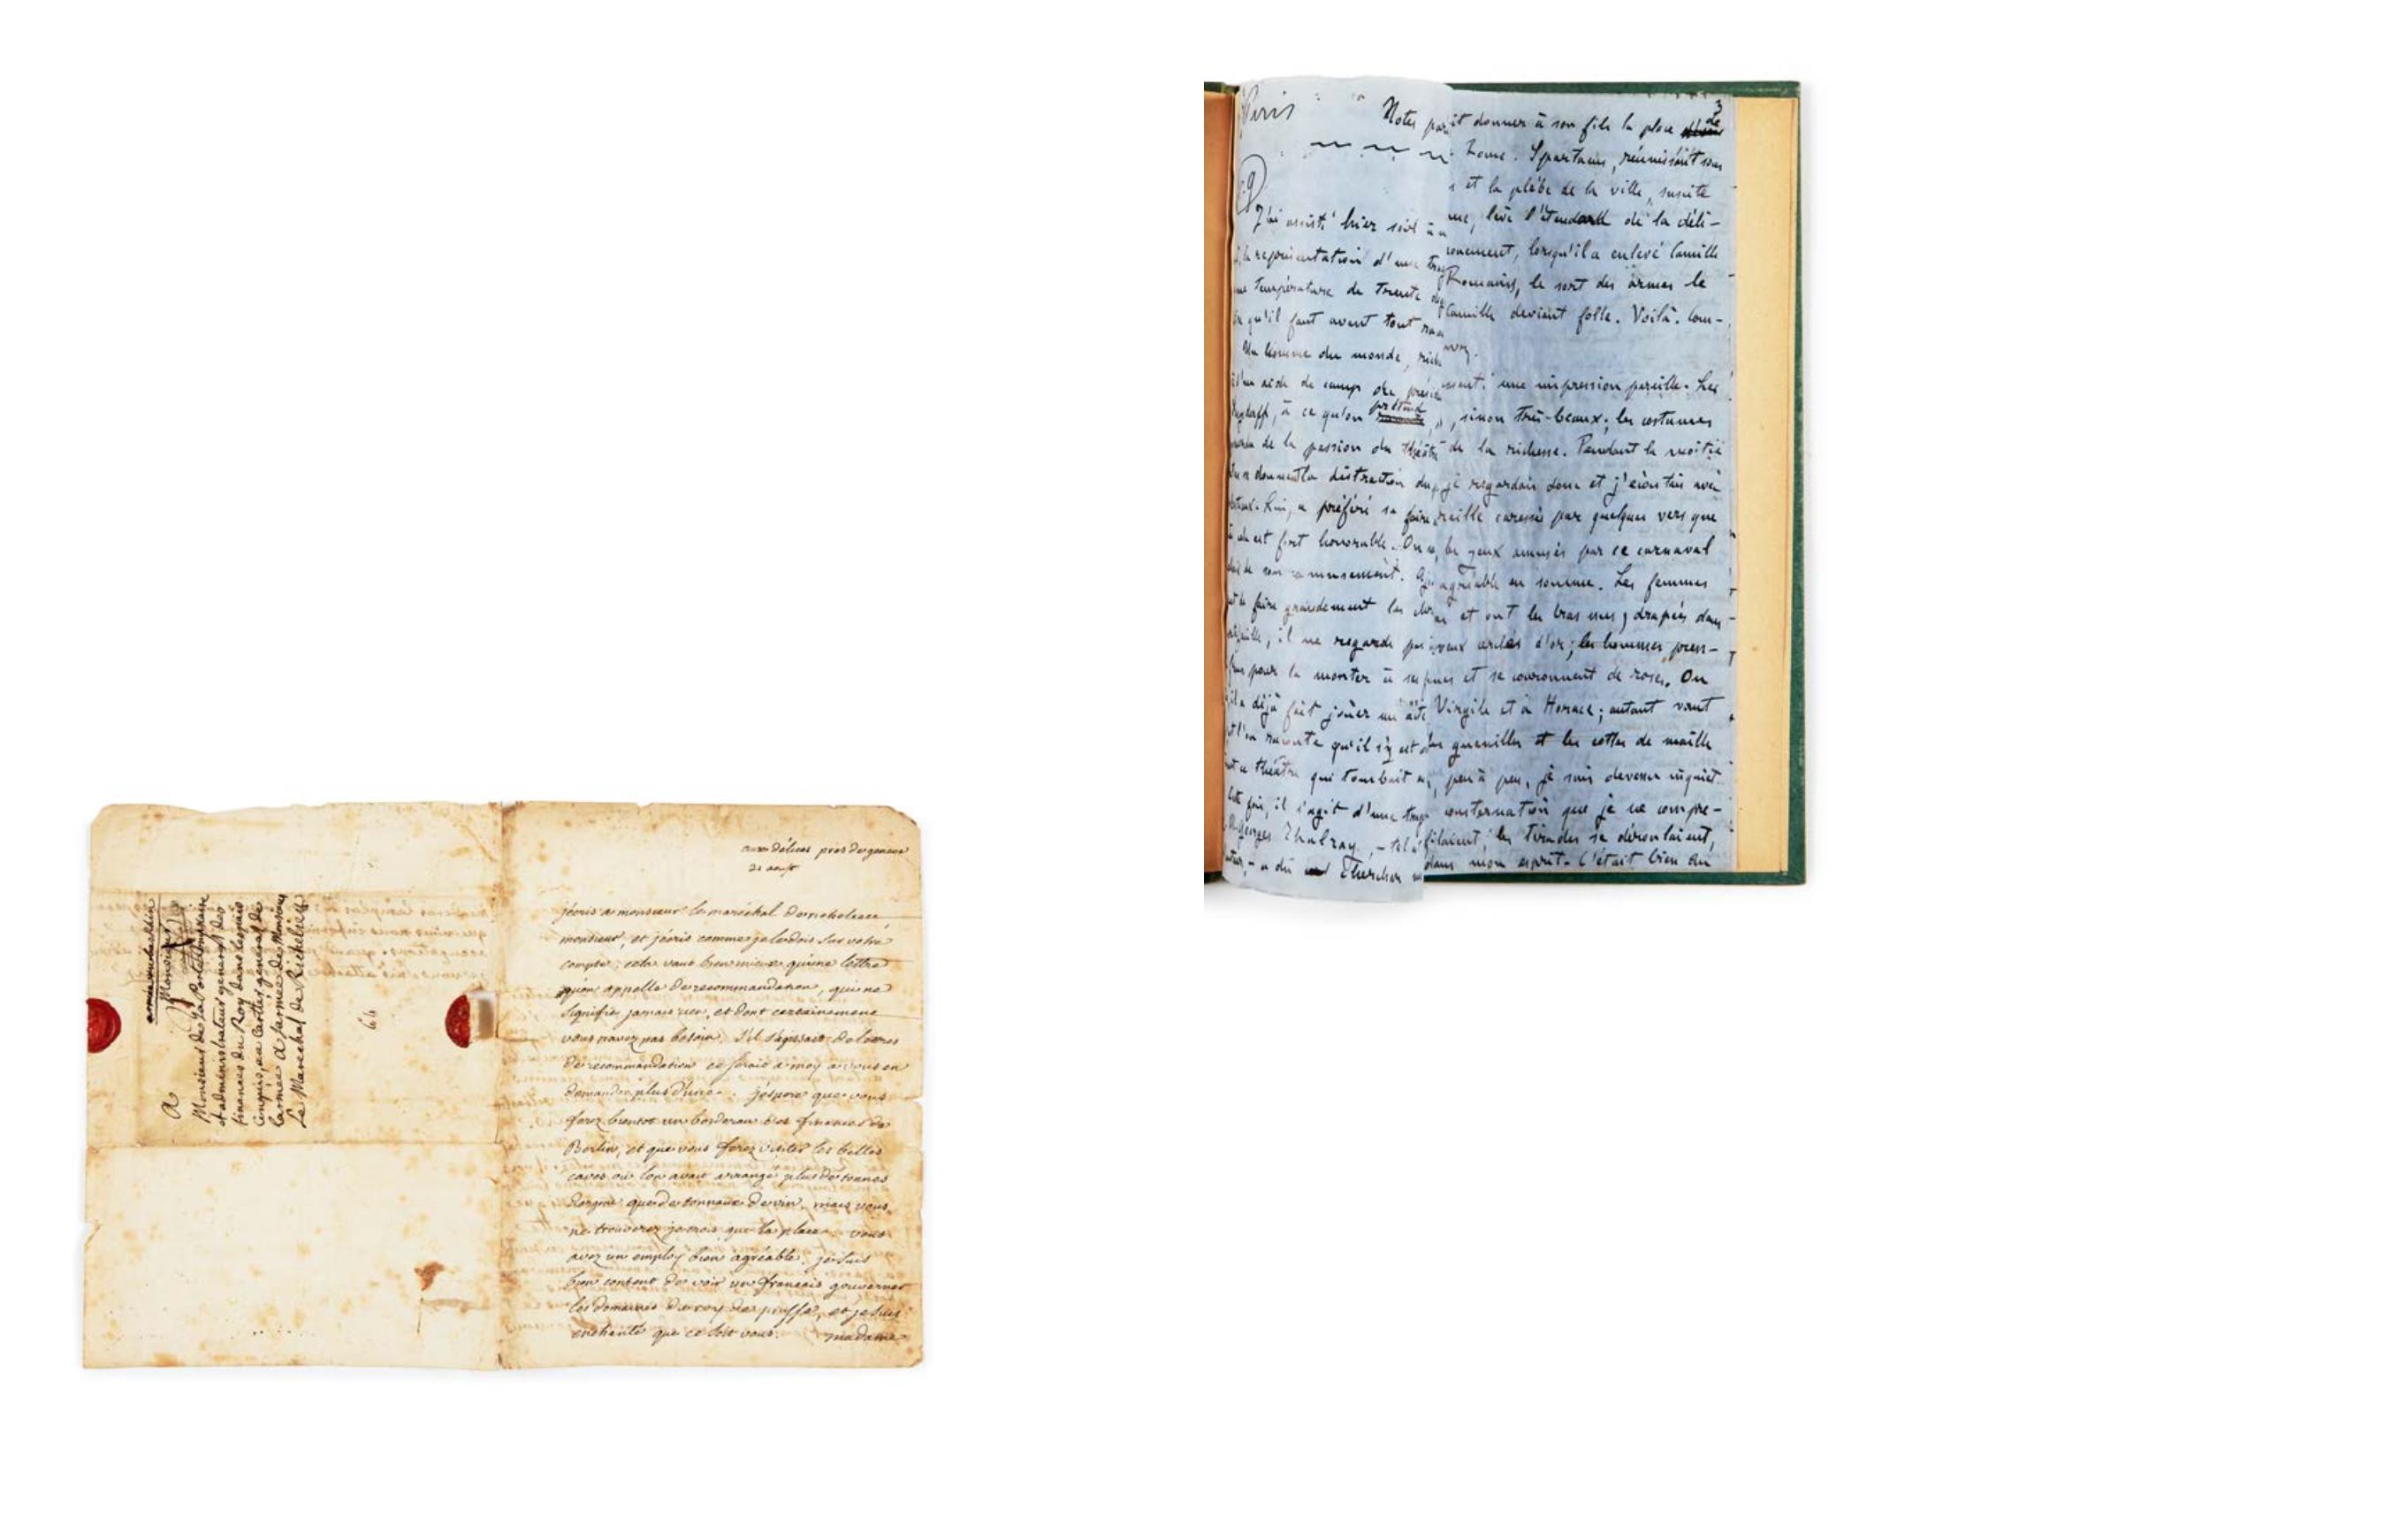 A
Monsieur
Monsieur de la Porte
et administrateur general des
finances du Roy dans les païs
conquis, au Cartier général de
L'armée de Monsieur
Le Marechal de Richelieu
64
aux délices pres de geneve
21 aoust
jécris a monsieur le maréchal de richelieu
monsieur, et jécris comme je le dois sur votre
compte; cela vaut bien mieux quune lettre
quon appelle de recommandation, qui ne
signifie jamais rien, et dont certainement
vous navez pas besoin. s'il s'agissait de lettres
de recommandation ce serait a moy a vous en
demander plus d'une. jéspere que vous
ferez bientot un bordereau des finances de
Berlin, et que vous ferez visiter les belles
caves ou l'on avait arrangé plus de tonnes
dargent que de tonnaux de vin, mais vous
ne trouverez jamais que la place. vous
avez un employ bien agréable. je suis
bien content de voir un français gouverner
les domaines du roy de prusse, et je suis
enchanté que ce soit vous. madame
Paris
Notes
J'ai assisté hier soir à
la représentation d'une
température de trente
qu'il faut avant tout
Un homme du monde, riche
aide de camp du
à ce qu'on prétend
de la passion du théâtre
donner la distraction
Lui, a préféré se faire
est fort honorable. On
de son amusement.
faire grandement les
il ne regarde pas
pour la monter à ses
il a déjà fait jouer un acte
l'on raconte qu'il s'y est
ce théâtre qui tombait
Cette fois, il s'agit d'une
Georges Thalray, – tel
a dû chercher
3
donner à son fils la place de
Rome. Spartacus, réunissant sous
et la plèbe de la ville, suscite
lève l'étendard de la déli-
lorsqu'il a enlevé Camille
Romains, le sort des armes le
Camille devient folle. Voilà. Com-
une impression pareille. Les
sinon très-beaux; les costumes
de la richesse. Pendant la moitié
je regardais donc et j'écoutais avec
oreille caressée par quelques vers que
les yeux amusés par ce carnaval
agréable en somme. Les femmes
et ont les bras nus, drapées dans
cerclés d'or; les hommes pren-
et se couronnent de roses. On
Virgile et à Horace; autant vaut
guenilles et les cottes de maille
peu à peu, je suis devenu inquiet
consternation que je ne compre-
filaient, les tirades se déroulaient,
dans mon esprit. C'était bien du